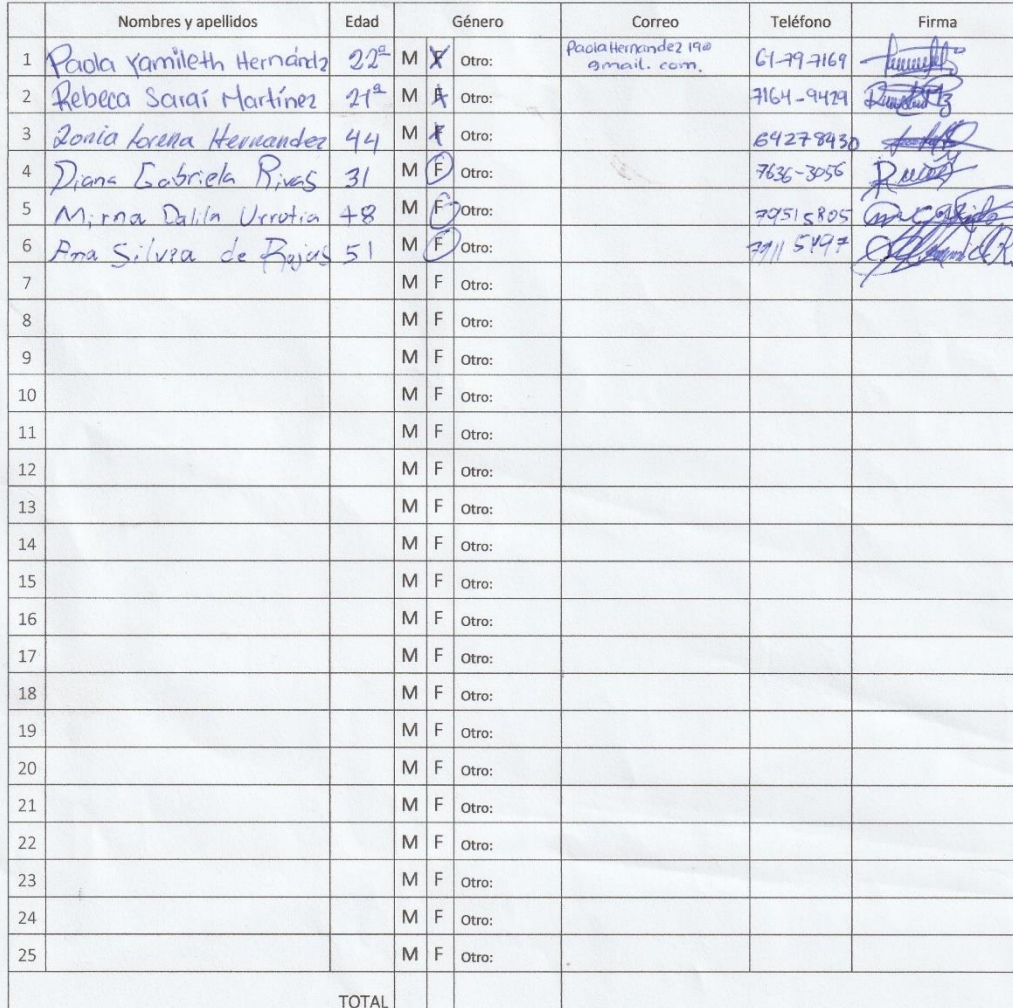 Nombres y apellidos Edad Género Correo Teléfono Firma
1 Paola Yamileth Hernández 22ª M F Otro: PaolaHernandez 19@ gmail.com. 61-79-7169
2 Rebeca Saraí Martínez 21ª M F Otro: 7164-9429
3 Zonia Lorena Hernandez 44 M F Otro: 64278430
4 Diana Gabriela Rivas 31 M F Otro: 7636-3056
5 Mirna Dalila Urrutia 48 M F Otro: 79515805
6 Ana Silvia de Rojas 51 M F Otro: 7911 5497
7 M F Otro:
8 M F Otro:
9 M F Otro:
10 M F Otro:
11 M F Otro:
12 M F Otro:
13 M F Otro:
14 M F Otro:
15 M F Otro:
16 M F Otro:
17 M F Otro:
18 M F Otro:
19 M F Otro:
20 M F Otro:
21 M F Otro:
22 M F Otro:
23 M F Otro:
24 M F Otro:
25 M F Otro:
TOTAL